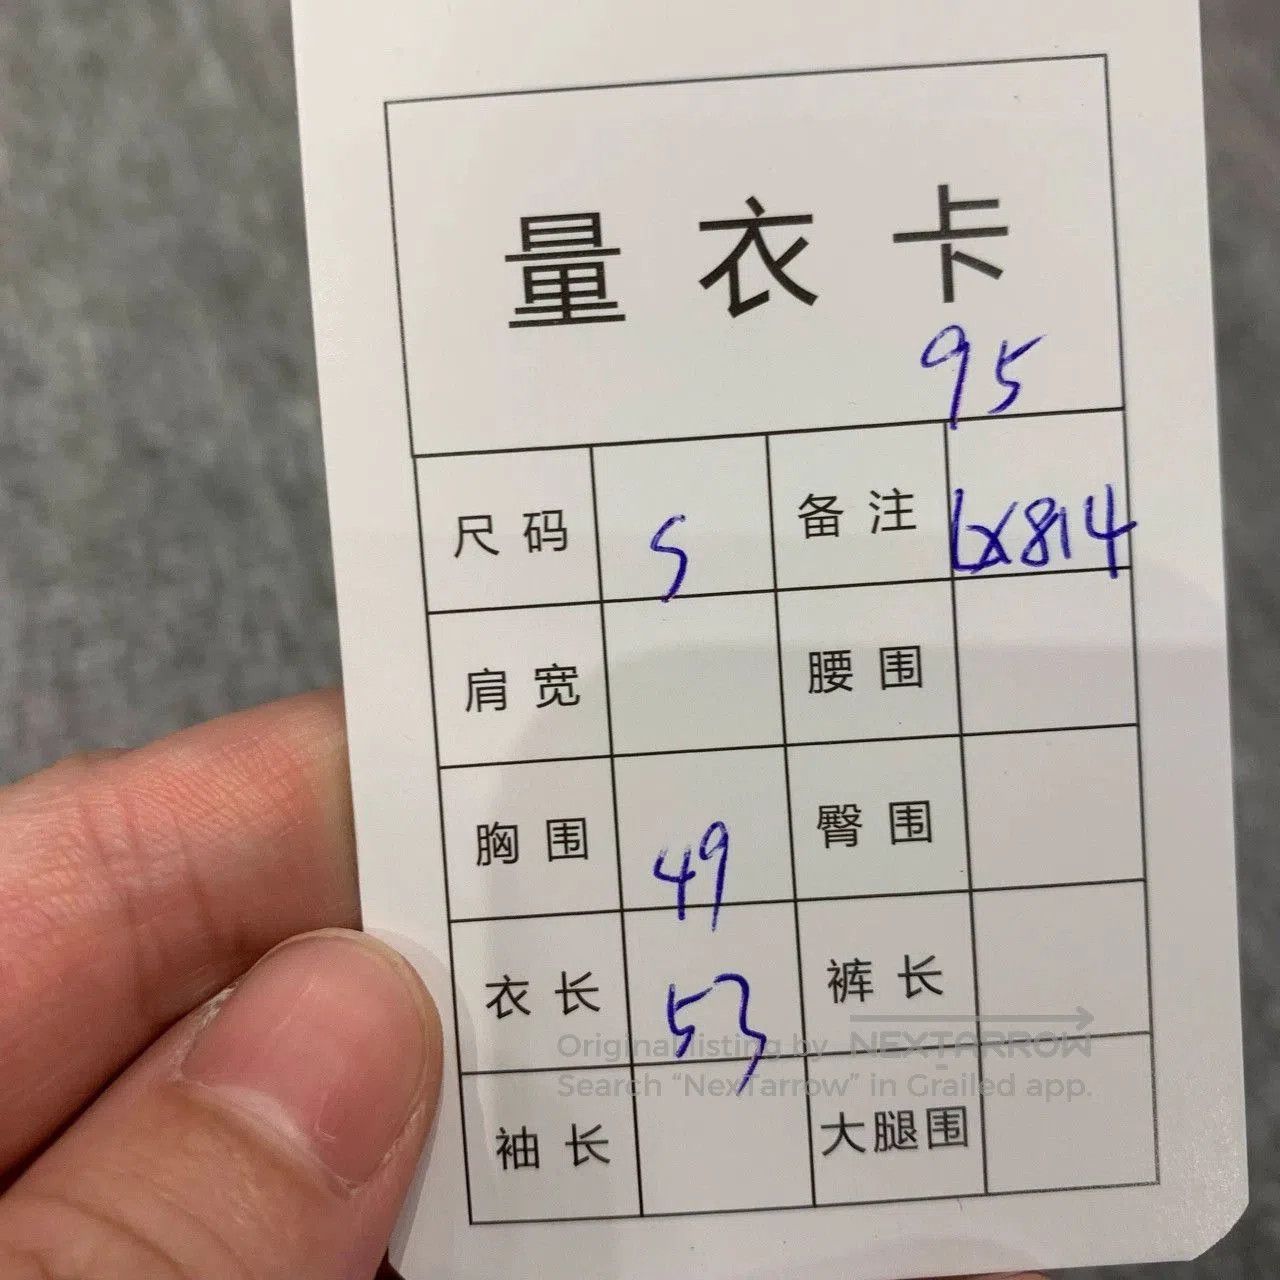 量衣卡
95
尺码 S 备注 LX814
肩宽 腰围
胸围 49 臀围
衣长 53 裤长
袖长 大腿围
Original listing by NEXTARROW
Search “NexTarrow” in Grailed app.